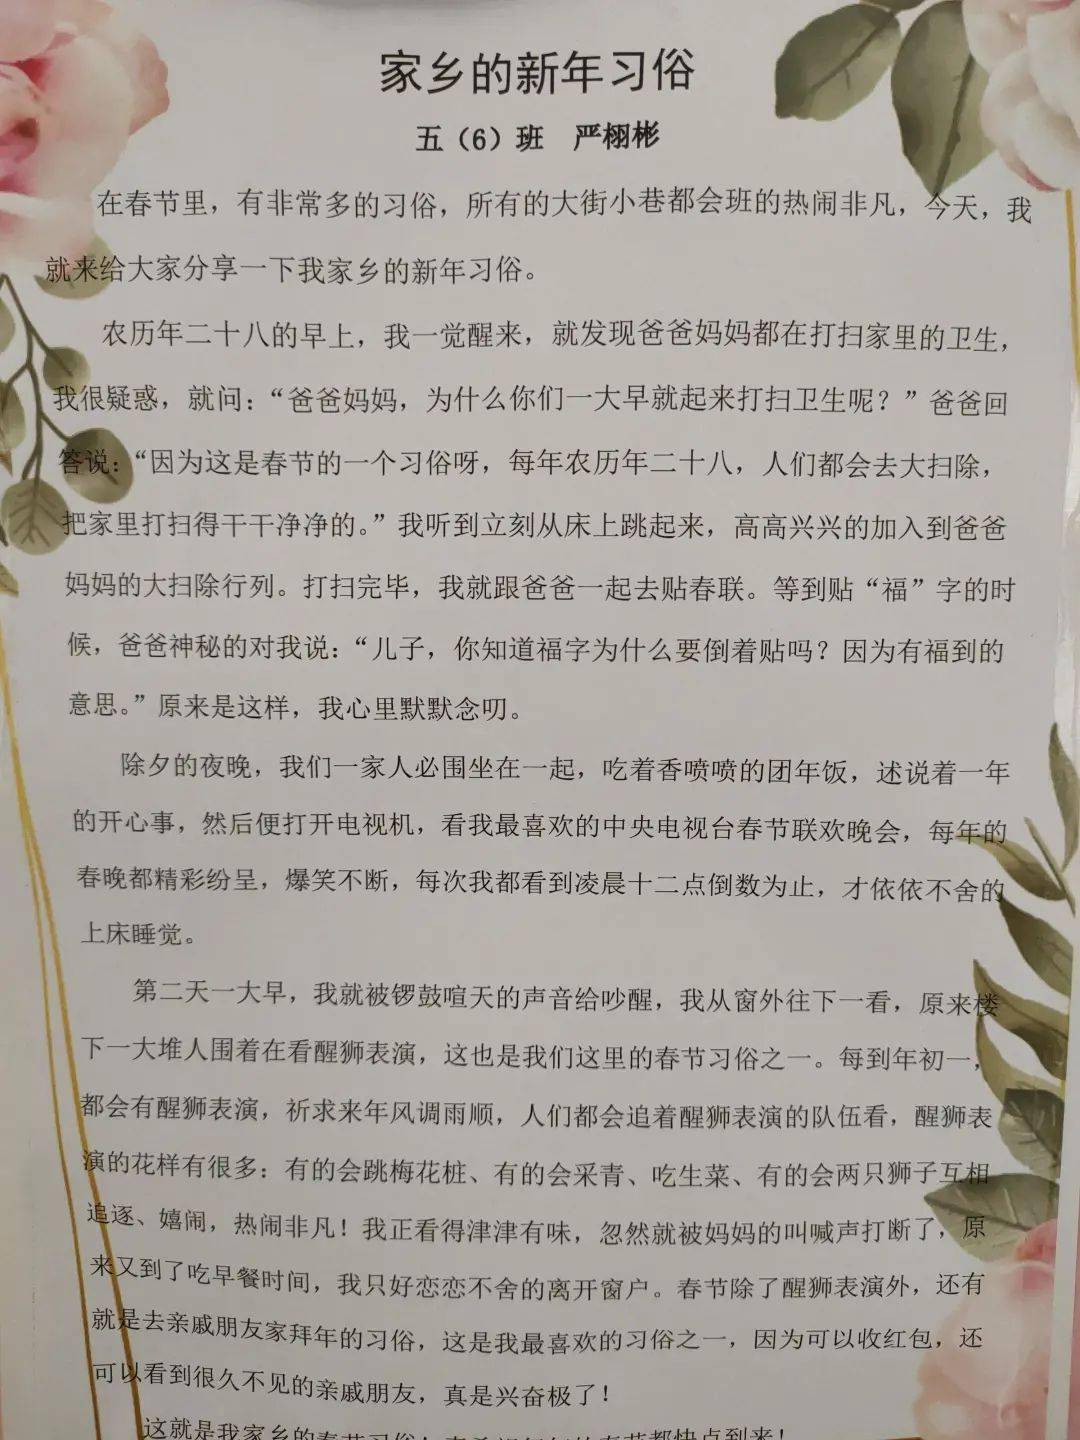 家乡的新年习俗
五（6）班 严栩彬
在春节里，有非常多的习俗，所有的大街小巷都会班的热闹非凡，今天，我
就来给大家分享一下我家乡的新年习俗。
农历年二十八的早上，我一觉醒来，就发现爸爸妈妈都在打扫家里的卫生，
我很疑惑，就问：“爸爸妈妈，为什么你们一大早就起来打扫卫生呢？”爸爸回
答说：“因为这是春节的一个习俗呀，每年农历年二十八，人们都会去大扫除，
把家里打扫得干干净净的。”我听到立刻从床上跳起来，高高兴兴的加入到爸爸
妈妈的大扫除行列。打扫完毕，我就跟爸爸一起去贴春联。等到贴“福”字的时
候，爸爸神秘的对我说：“儿子，你知道福字为什么要倒着贴吗？因为有福到的
意思。”原来是这样，我心里默默念叨。
除夕的夜晚，我们一家人必围坐在一起，吃着香喷喷的团年饭，述说着一年
的开心事，然后便打开电视机，看我最喜欢的中央电视台春节联欢晚会，每年的
春晚都精彩纷呈，爆笑不断，每次我都看到凌晨十二点倒数为止，才依依不舍的
上床睡觉。
第二天一大早，我就被锣鼓喧天的声音给吵醒，我从窗外往下一看，原来楼
下一大堆人围着在看醒狮表演，这也是我们这里的春节习俗之一。每到年初一，
都会有醒狮表演，祈求来年风调雨顺，人们都会追着醒狮表演的队伍看，醒狮表
演的花样有很多：有的会跳梅花桩、有的会采青、吃生菜、有的会两只狮子互相
追逐、嬉闹，热闹非凡！我正看得津津有味，忽然就被妈妈的叫喊声打断了，原
来又到了吃早餐时间，我只好恋恋不舍的离开窗户。春节除了醒狮表演外，还有
就是去亲戚朋友家拜年的习俗，这是我最喜欢的习俗之一，因为可以收红包，还
可以看到很久不见的亲戚朋友，真是兴奋极了！
这就是我家乡的春节习俗！的春节都快点到来！